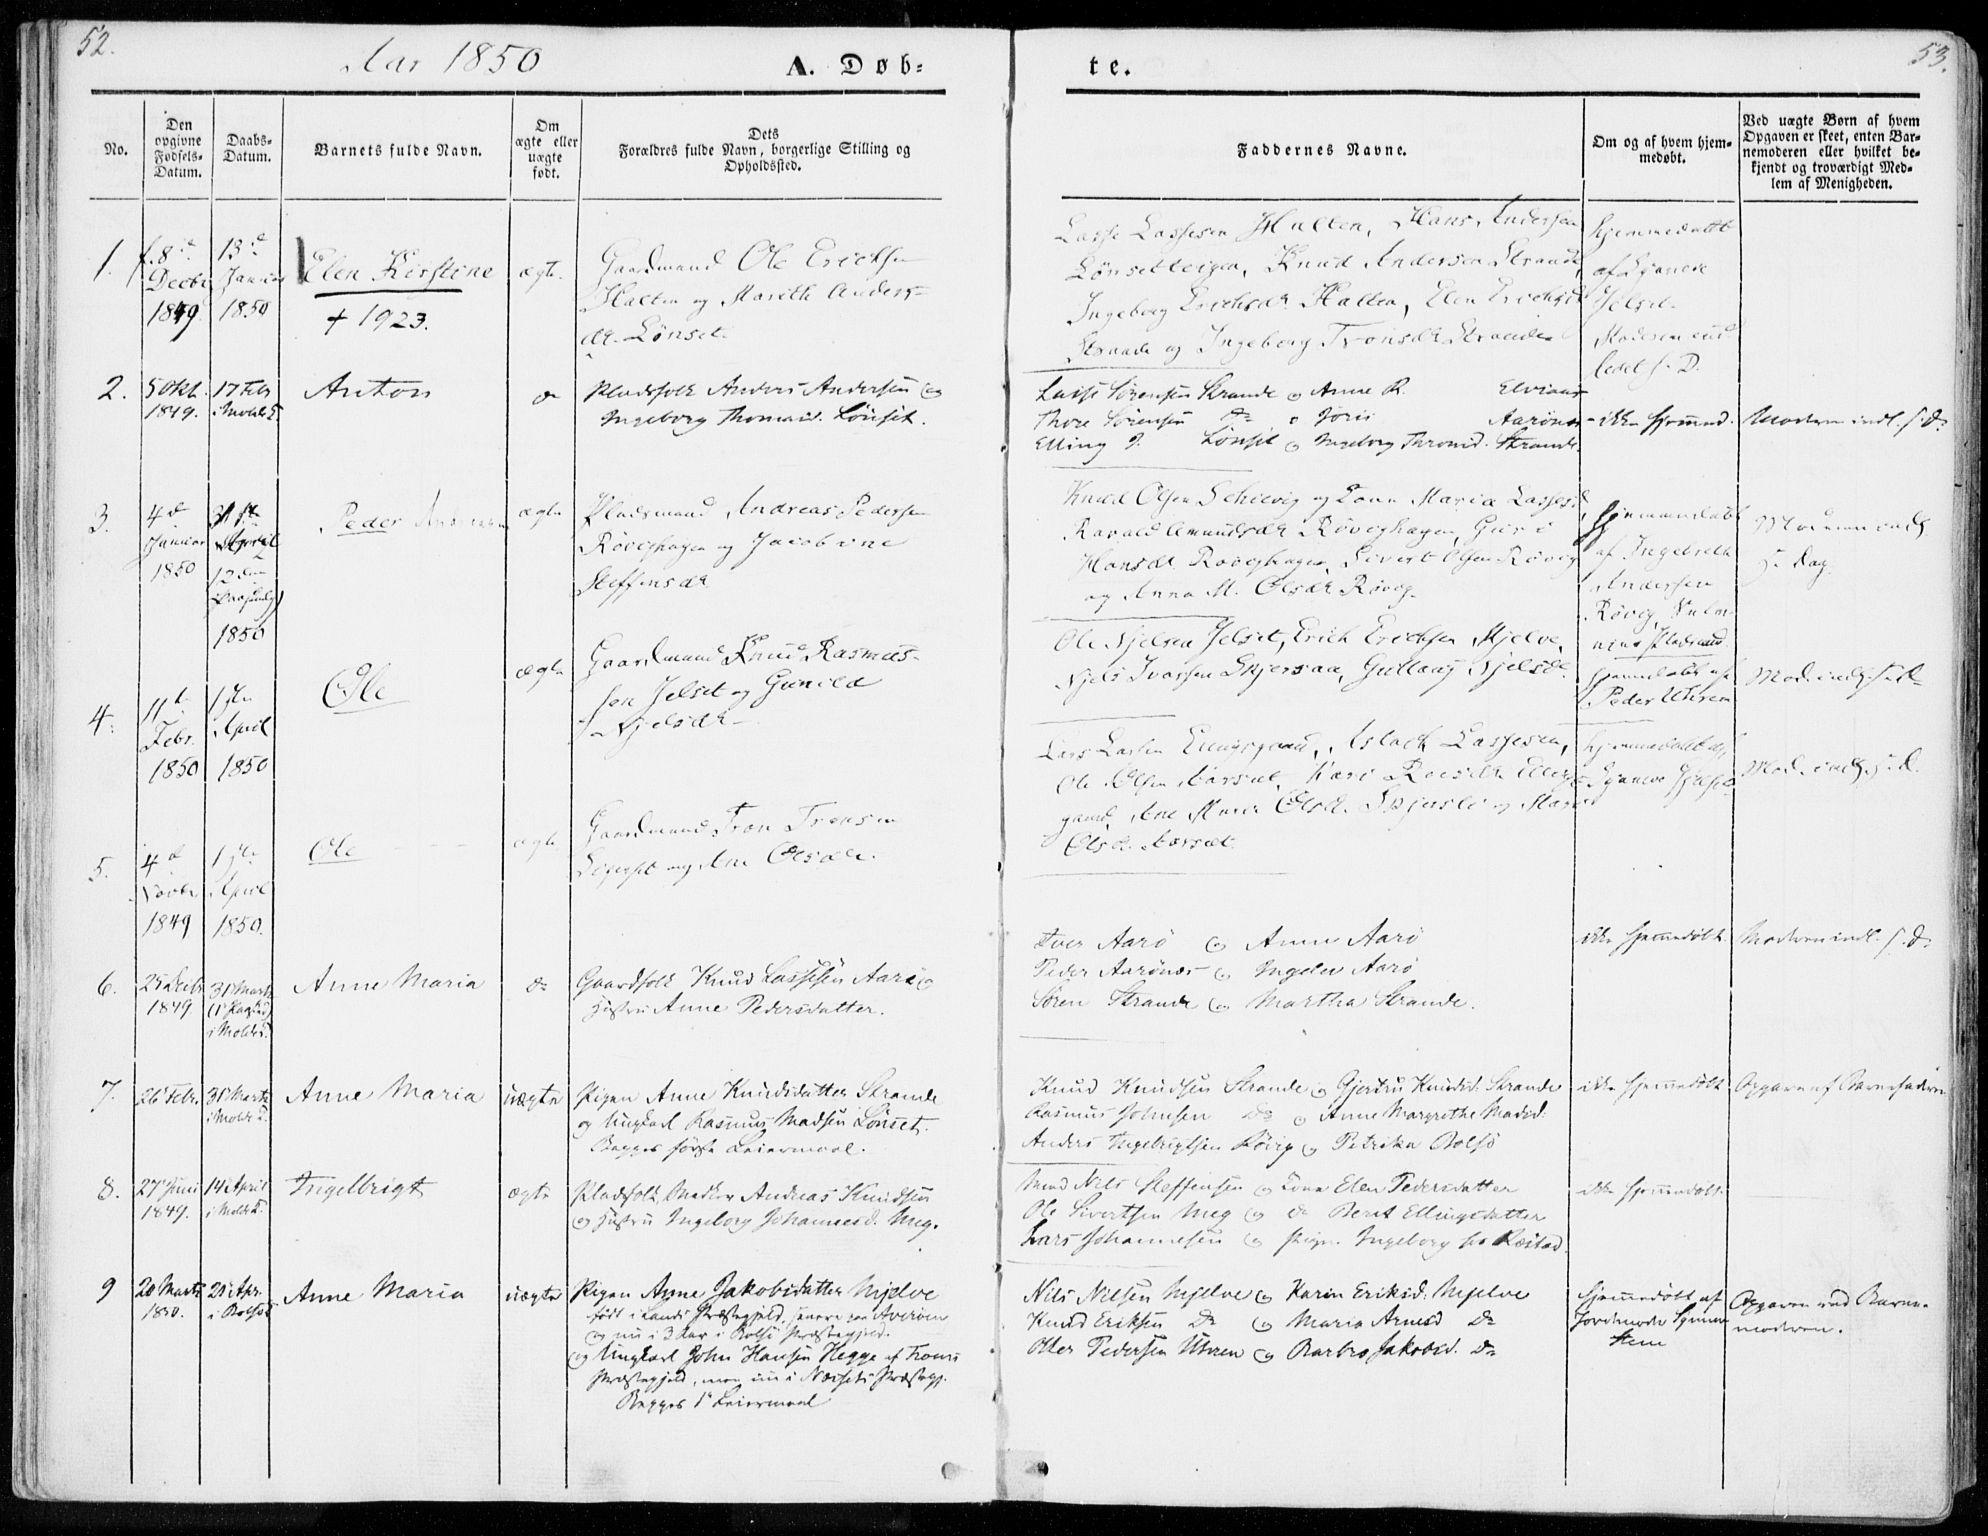 52.
Aar 1850
A. Døb-
te.
53.
No.
Den
opgivne
Fødsels-
Datum.
Daabs-
Datum.
Barnets fulde Navn.
Om
ægte eller
uægte
født.
Dets
Forældres fulde Navn, borgerlige Stilling og
Opholdssted.
Faddernes Navne.
Om og af hvem hjem-
medøbt.
Ved uægte Børn af hvem
Opgaven er skeet, enten Bar-
nemoderen eller hvilket be-
kjendt og troværdigt Med-
lem af Menigheden.
1.
8de
Decbr
1849.
13de
Januar
1850
Elen Kirstine
† 1923.
ægte
Gaardmand Ole Ericksen
Halten og Marith Anders-
dr. Lønset.
Lasse Lassesen Hulten, Hans Andersen
Lønsetteigen, Knud Andersen Strande,
Ingeborg Erichsdr Halten, Elen Erichsd
Strande og Ingeborg Tronsdr Strande
hjemmedøbt
af
Jelset.
Moderen ind
ledet s. D.
2.
5 Okt.
1849.
17 Febr
i Molde
Anton
do
Pladsfolk Anders Andersen og
Ingeborg Thomasd. Lønset.
Lasse Sørensen Strande og Anne R. Elvsaas
Thore Sørensen do og Joris Aarønes
Elling J. Lønset og Ingeborg Thronsd. Strande.
ikke hjemmed.
Moderen indl. s. D.
3.
4de
Januar
1850
April
1850
Peder Andreas
ægte
Pladsmand Andreas Pedersen
Røvighagen og Jacobine
Steffensdr
Knud Olsen Schievig og Kone Maria Lassesd,
Amundsdr Røvighagen, Guri
Hansdr Røvighagen, Sivert Olsen Røvig
og Anna M. Olsdr Røvig.
Hjemmedøbt
af Ingebreth
Andersen
Røvig,
Moderen indl
s. Dag.
4.
11te
Febr.
1850
1ste
April
1850
Ole
ægte
Gaardmand Knud Rasmus-
sen Jelset og Gunild
Njelsdr
Ole Njelsen Jelset, Erich Erichsen Mjelve,
Njels Ivarsen Skjersaa, Gullaug Njelsd.
hjemmedøbt af
Peder Uhren
Mod. indl. s. d.
5.
4de
Novbr
1849
1ste
April
1850.
Ole
ægte
Gaardmand Tron Tronsen
og Ane Olsdr.
Lars Larsen Ellingsgaard, Aslach Lassesen,
Ole Olsen Aarset, Kari Ellings-
gaard, Ane Marie Olsd. og Mari
Olsd. Aarset.
hjemmedøbt af
Mod. indl. s. d.
6.
25 Decbr
1849
31 Marts
(1 Paaskd)
i Molde
Anne Maria
do
Gaardfolk Knud Lassesen Aarø og
Hustru Anne Pedersdatter.
Iver Aarø og Anne Aarø
Peder Aarønes og Ingeler Aarø
Søren Strande og Martha Strande.
ikke hjemmedøbt
Moderen indl. s. D.
7.
26 Febr.
31 Marts
i Molde
Anne Maria
uægte
Pigen Anne Knudsdatter Strande
og Ungkarl Rasmus Madsen Lønset.
Begges første Leiermaal.
Knud Knudsen Strande og Gjertru Knudsd. Strande
Rasmus Johnsen do og Anne Margrethe Madsd.
Anders Ingebrigtsen Røvig og Petrika Bolsø
ikke hjemmedøbt
Opgaven af Barnefaderen
8.
27 Juni
1849.
14 April
i Molde
Ingelbrigt
ægte
Pladsfolk Andreas Knudsen
og Hustru Ingeborg Johannesd. Meg.
Nils Steffensen og Kone Elen Pedersdatter
Ole Sivertsen Meg og do Berit Ellingsdatter
Lars Johannesen og Pigen Ingeborg
ikke hjemmedøbt.
9
20 Marts
1850.
21 Apr.
i Bolsø
Anne Maria
uægte
Pigen Anne Jakobsdatter Mjelve
født i Sunds Præstegjeld, senere paa Averøen
og nu i 3 Aar i Bolsø Præstegjeld.
og Ungkarl John Hansen Hegge af
Præstegjeld, men nu i Nessets Præstegj.
Begges 1ste Leiermaal
Nils Nilsen Mjelve og Karen Eriksd. Mjelve
Knud Eriksen do og Maria Arnesd do
Otter Pedersen Uhren og Barbro Jakobsd. do
Hjemmedøbt af
Jordemoder
Opgaven ved Barne-
moderen.